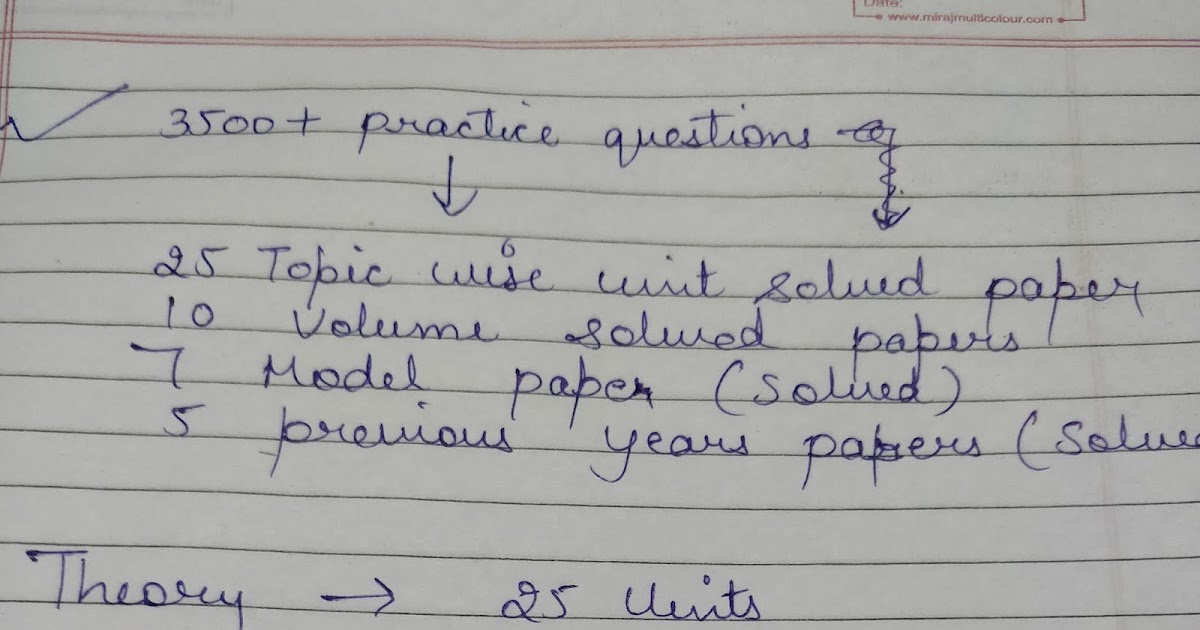 Date:
www.mirajmulticolour.com
3500+ practice questions
25 Topic wise unit solved paper
10 Volume solved papers
7 Model paper (solved)
5 previous years papers (Solved
Theory → 25 Units